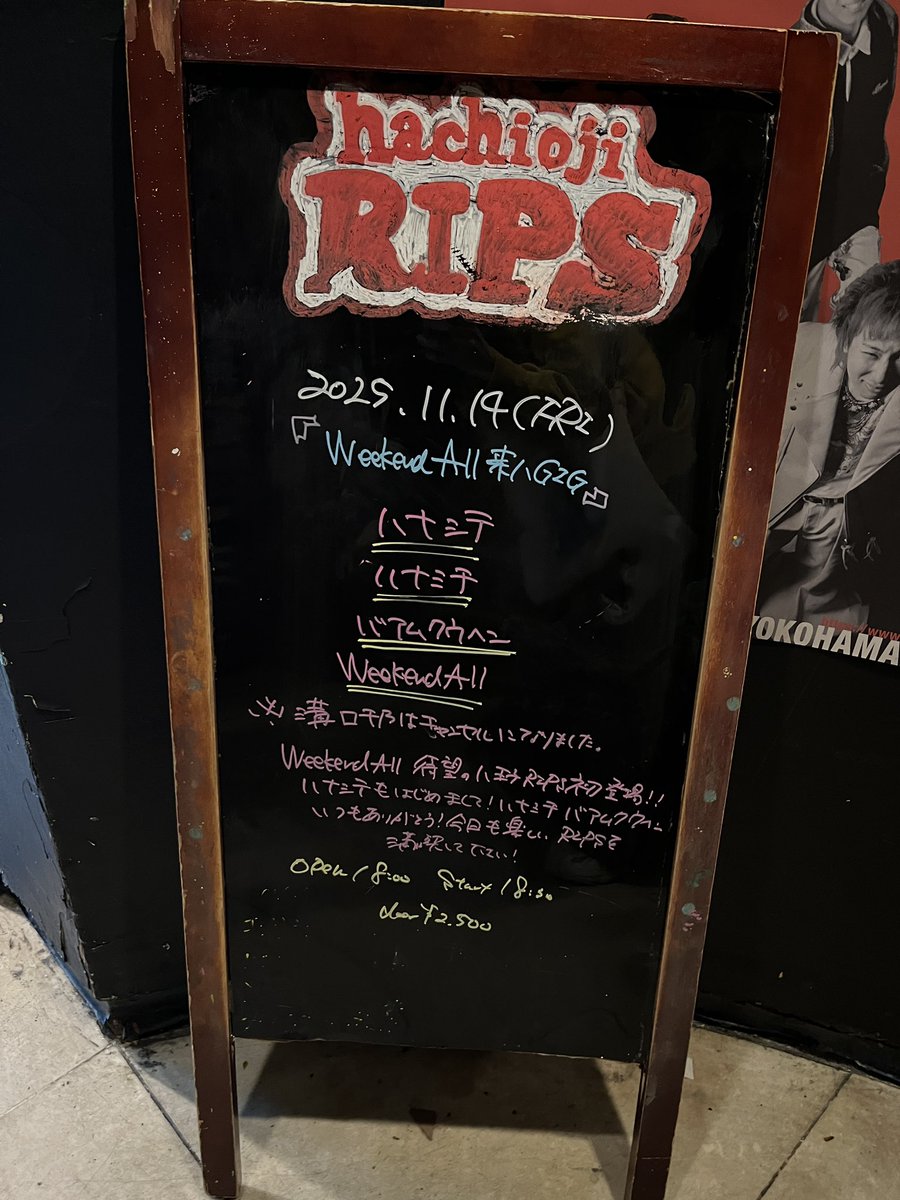 hachioji
RIPS
2025.11.14(FRI)
『Weekend All 来八GZG』
ハナミテ
ハナミチ
バアムクウヘン
Weekend All
※溝口千乃はキャンセルになりました。
Weekend All 待望の八王子RIPS初登場!!
ハナミテもはじめまして!ハナミチ バアムクウヘン
いつもありがとう!今日も楽しい RIPSを
満喫して下さい!
open 18:00 Start 18:30
door ¥2.500
YOKOHAMA